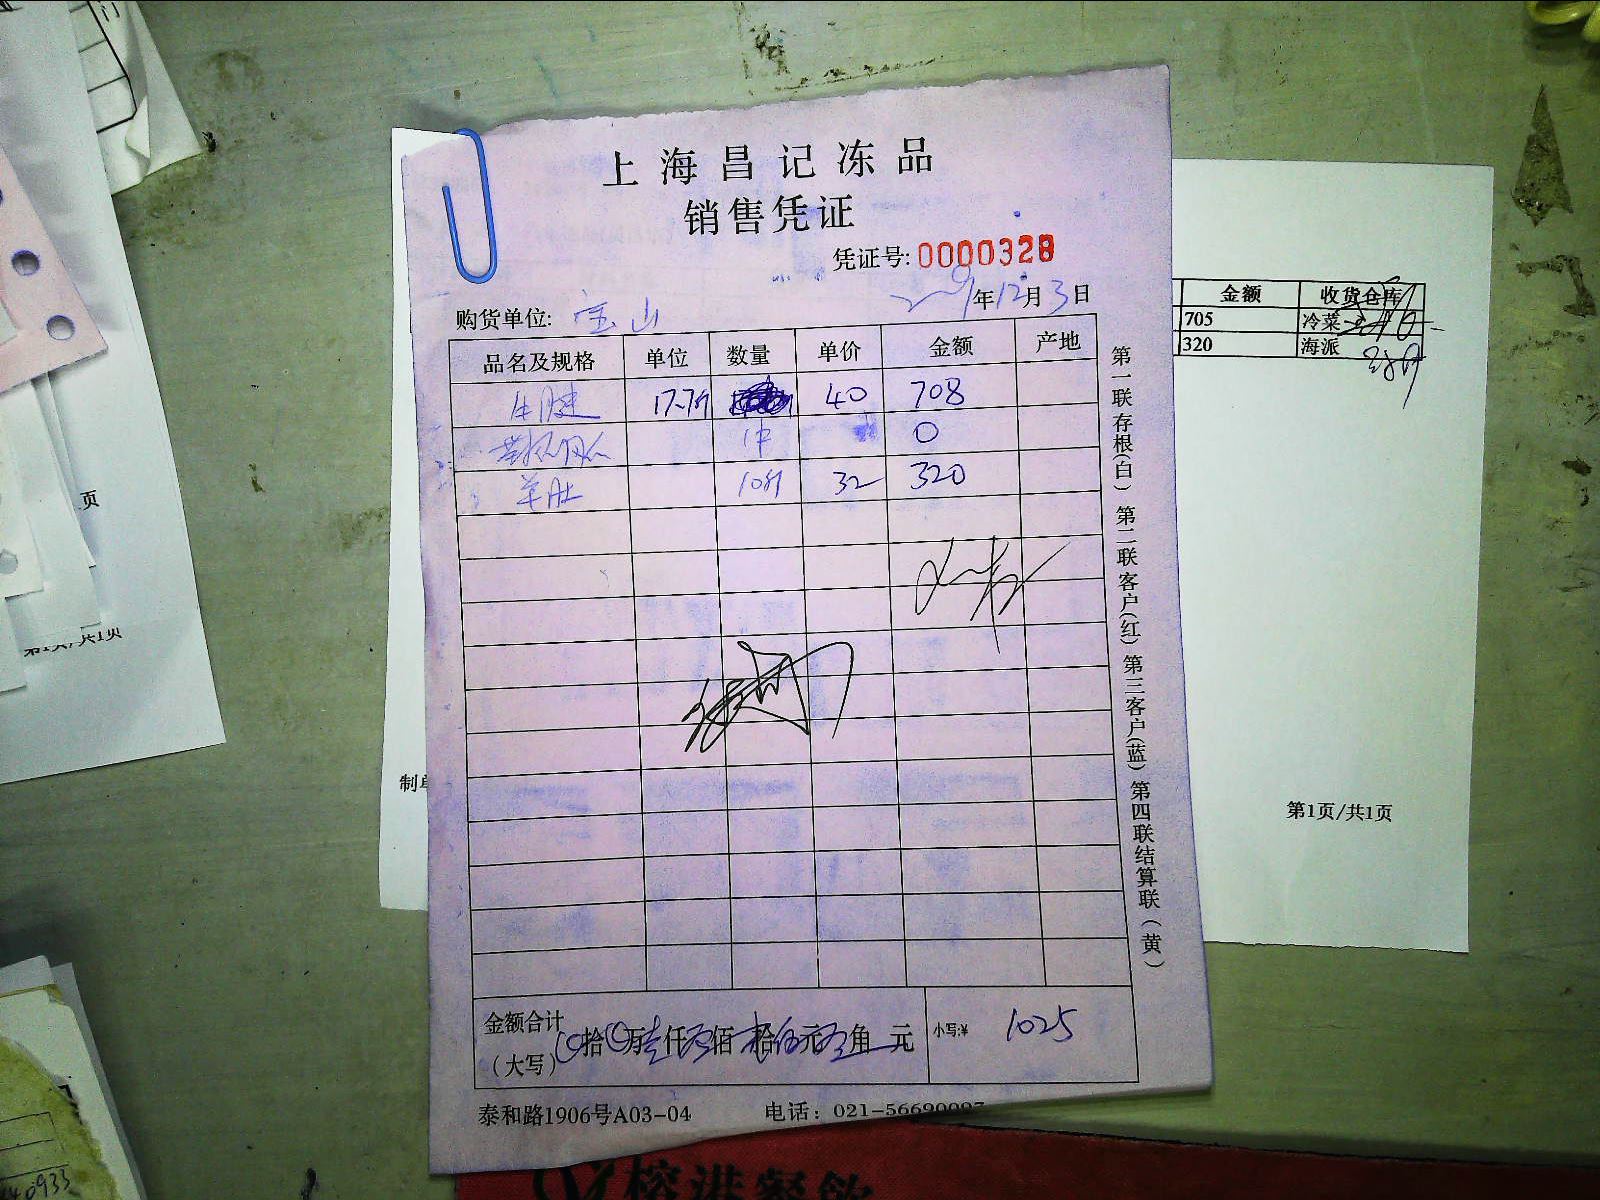 上海昌记冻品
销售凭证
凭证号:0000328
年12月3日
购货单位: 宝山
品名及规格 单位 数量 单价 金额 产地
牛腱 17.7斤 40 708
1件 0
羊肚 10斤 32 320
金额合计
(大写) 拾 万壹仟 佰 拾伍元 角 元 小写:¥ 1025
泰和路1906号A03-04 电话: 021-5669009
第一联存根(白) 第二联客户(红) 第三客户(蓝) 第四联结算联(黄)
金额 收货仓库
705 冷菜
320 海派
第1页/共1页
制单
页
第1页/共1页
榕港餐飲